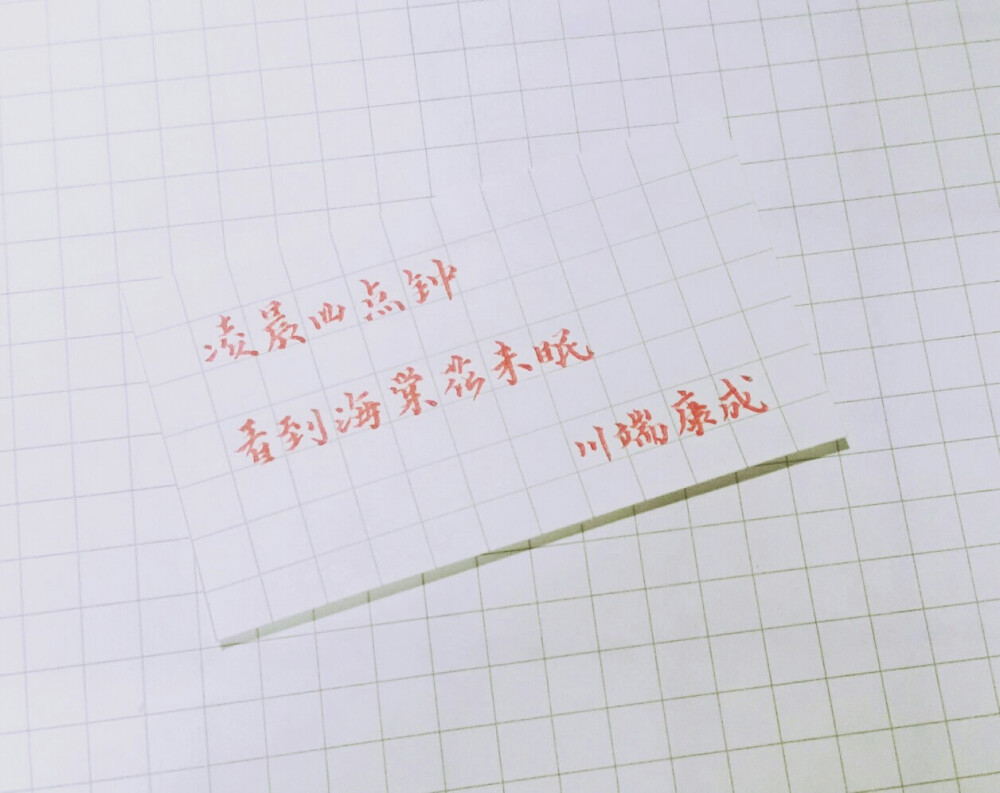 凌晨四点钟
看到海棠花未眠
川端康成